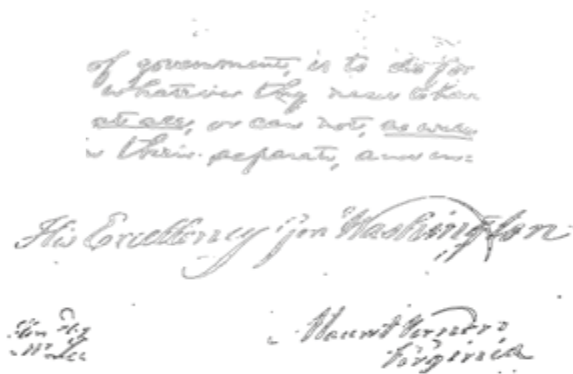 of government, is to do for
whatever they need to have
at all, or can not, as well
in their separate, and in=
His Excellency Gen Washington
Mount Vernon
Virginia